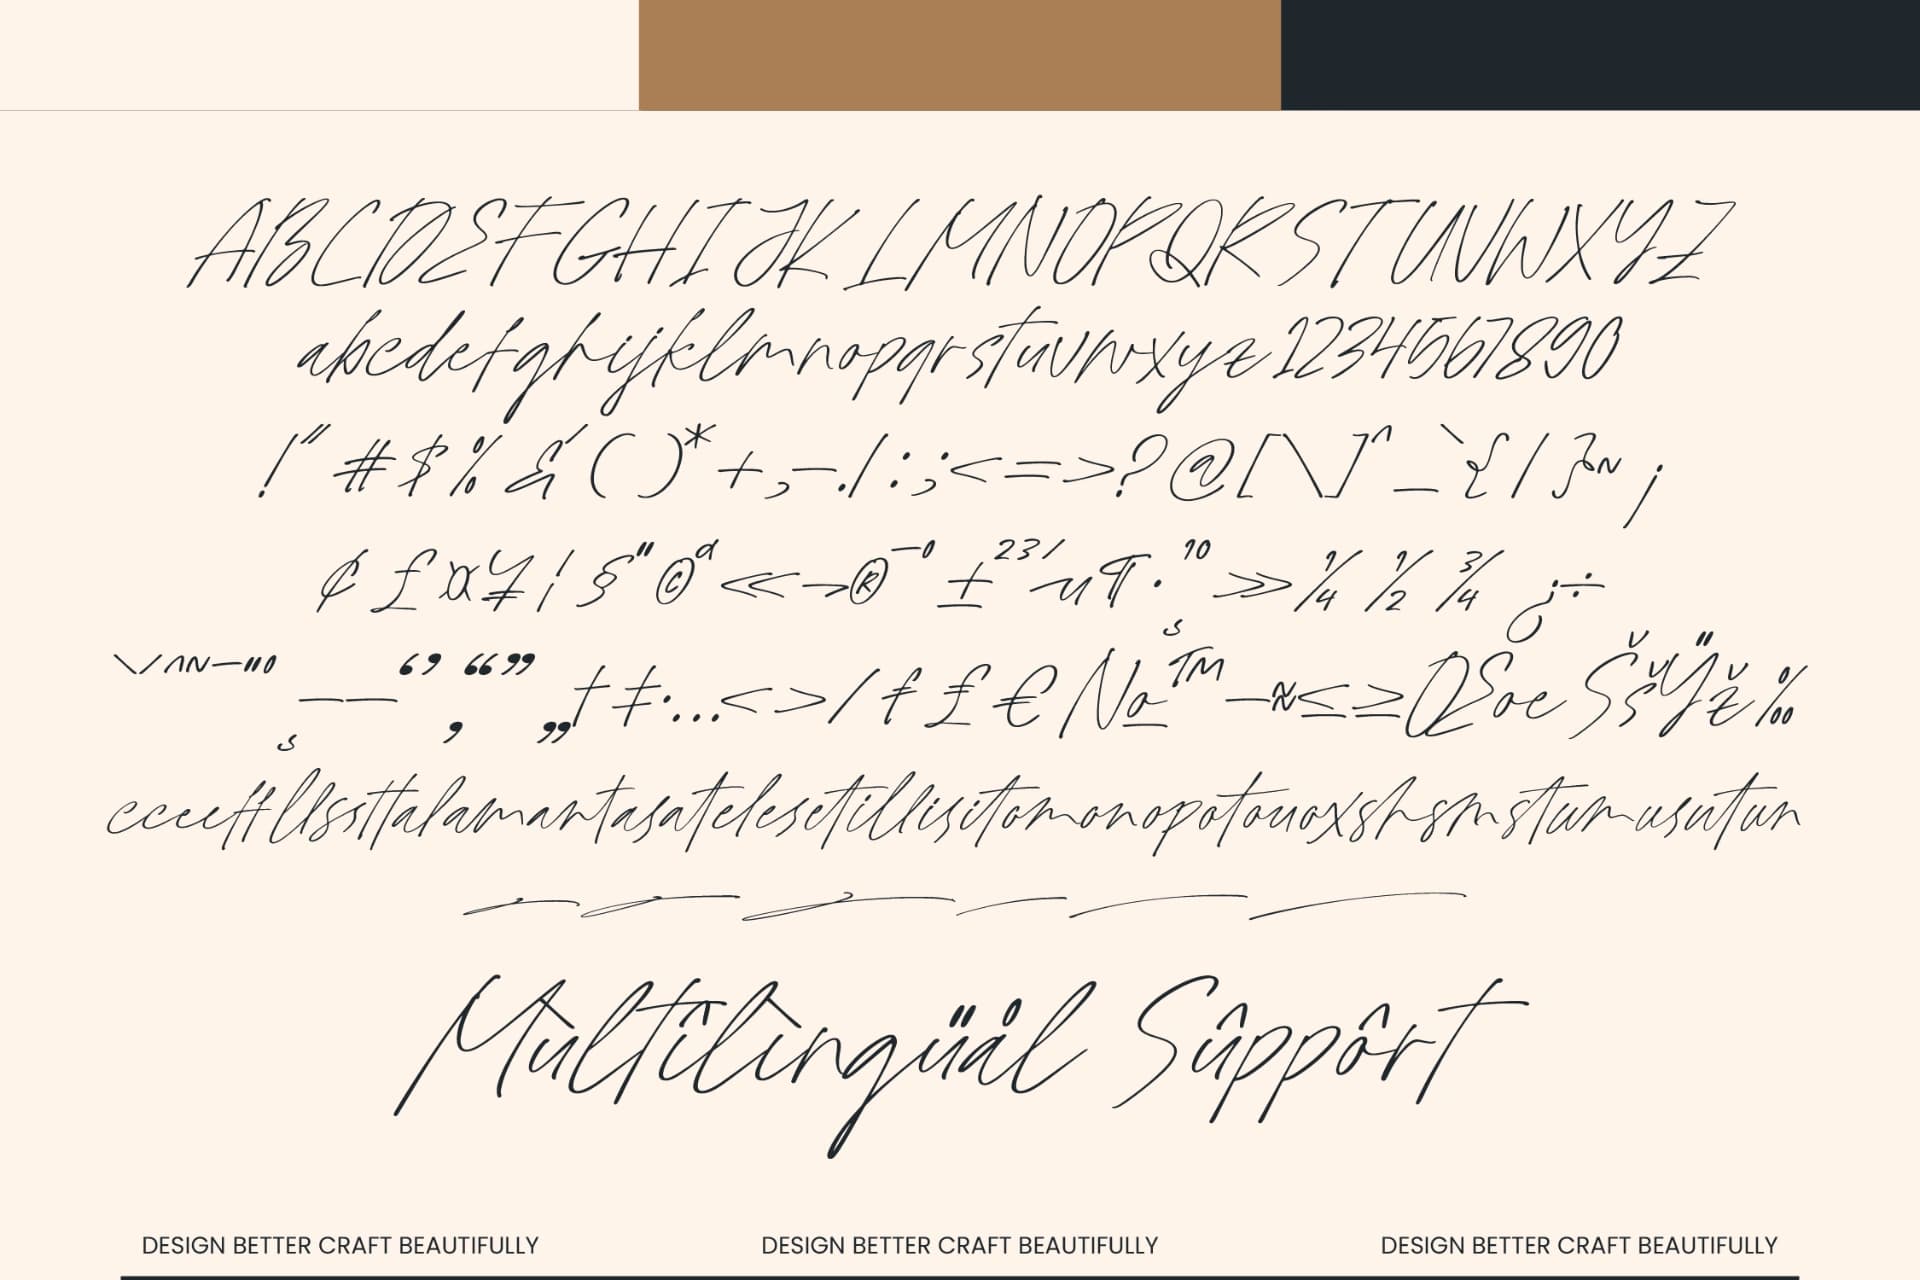 ABCDEFGHIJKLMNOPQRSTUVWXYZ
abcdefghijklmnopqrstuvwxyz1234567890
!"#$%&'()*+,-./:;<=>?@[\]^_`{|}~¡
¢£¤¥¦§¨©ª«¬®¯°±²³´µ¶·¸¹º»¼½¾¿÷
ˋˇˆ˜¯¨˚¸–—‘’‚“”„†‡•…‹›⁄ƒ₤€№™−≈≤≥ŒœŠšŸž‰
cceeffllssttalamantasatelesetillisitomonopotouoxshsmstumusutun
Mùltîlìngüål Sûppôrt
DESIGN BETTER CRAFT BEAUTIFULLY
DESIGN BETTER CRAFT BEAUTIFULLY
DESIGN BETTER CRAFT BEAUTIFULLY